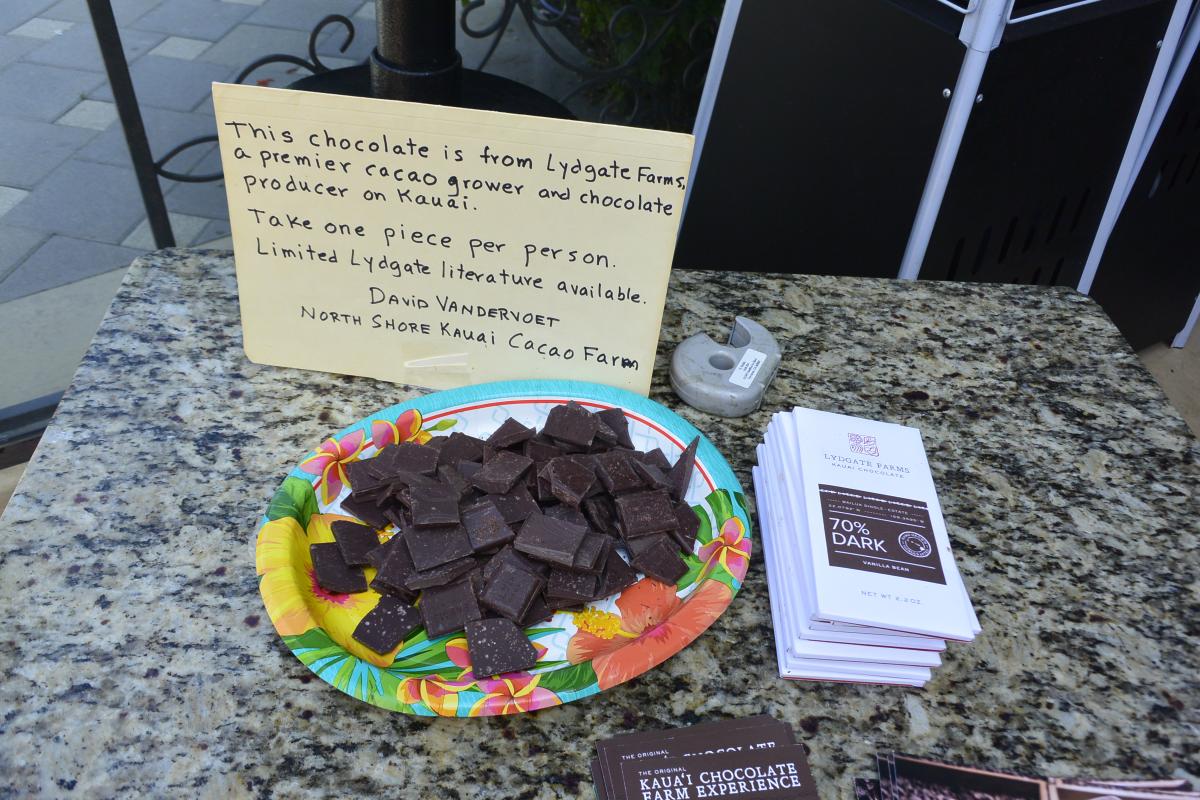 This chocolate is from Lydgate Farms,
a premier cacao grower and chocolate
producer on Kauai.
Take one piece per person.
Limited Lydgate literature available.
DAVID VANDERVOET
NORTH SHORE KAUAI CACAO FARM
LYDGATE FARMS
KAUAI CHOCOLATE
WAILUA SINGLE-ESTATE
70%
DARK
VANILLA BEAN
NET WT 2.2 OZ
THE ORIGINAL
CHOCOLATE
THE ORIGINAL
KAUA'I CHOCOLATE
FARM EXPERIENCE